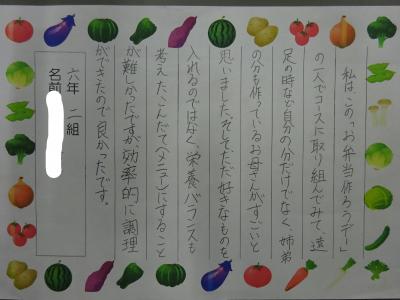 私は、この「お弁当作ろうデー」
の一人でコースに取り組んでみて、遠
足の時など自分の分だけでなく、姉弟
の分も作っているお母さんがすごいと
思いました。そしてただ好きなものを
入れるのではなく、栄養バランスも
考えた、こんだて(メニュー)にすること
が難しかったですが、効率的に調理
ができたので良かったです。
六年 二組
名前